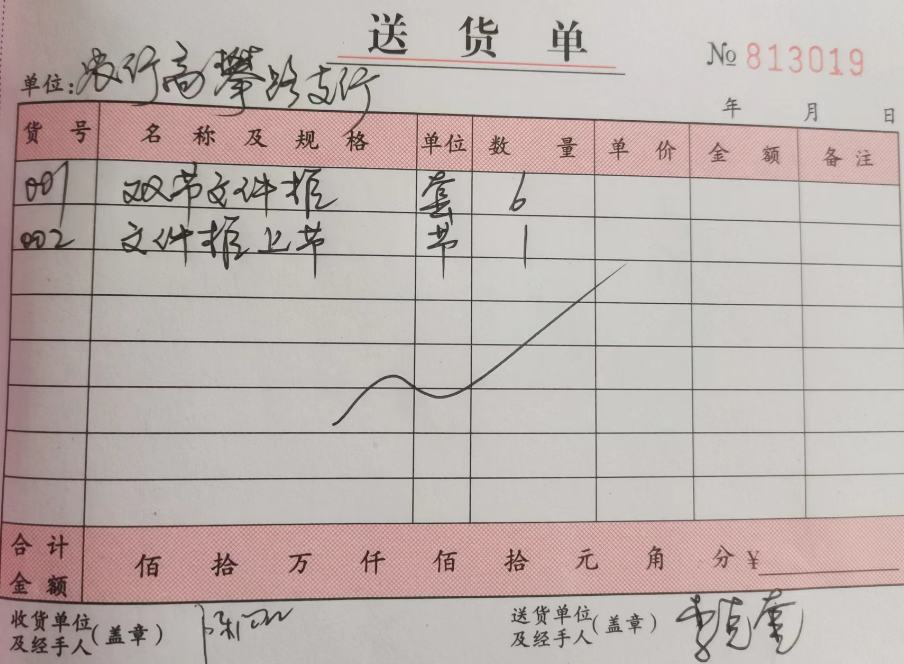 送货单
№ 813019
单位:农行高攀路支行
年 月 日
货号 名称及规格 单位 数量 单价 金额 备注
001 双节文件柜 套 6
002 文件柜上节 节 1
合计金额 佰拾万仟佰拾元角分 ¥
收货单位及经手人(盖章)
送货单位及经手人(盖章) 李克奎